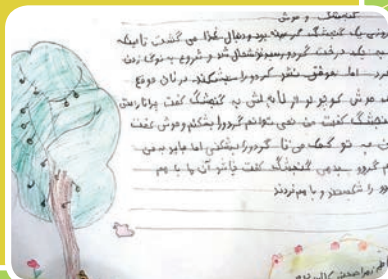 گنجشک و موش
روزی یک گنجشک گرسنه بود و دنبال غذا می گشت تا اینکه
به یک درخت گردو رسید خوشحال شد و شروع به نوک زدن
کرد اما موفق نشد گردو را بشکند در آن موقع
موش کوچولو از لانه اش به گنجشک گفت چرا ناراحتی
گنجشک گفت من نمی توانم گردو را بشکنم و موش گفت
من به تو کمک می نا گردو را بشکنی اما باید به من
هم گردو بدهی گنجشک گفت باشد آن ها با هم
را شکستند و با هم خوردند